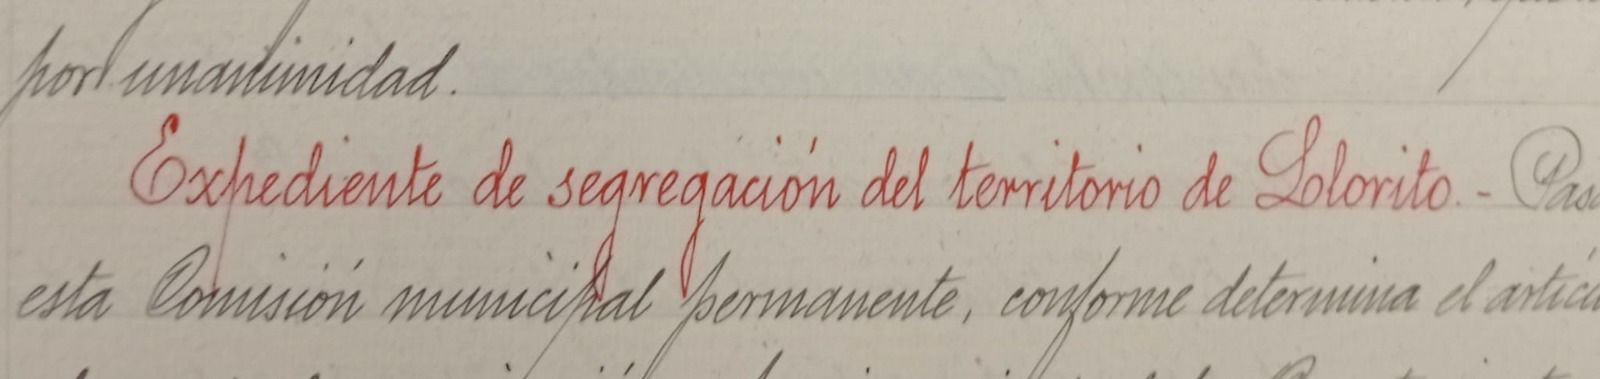 por unanimidad.
Expediente de segregación del territorio de Lolorito. - Pasa
esta Comisión municipal permanente, conforme determina el artícu